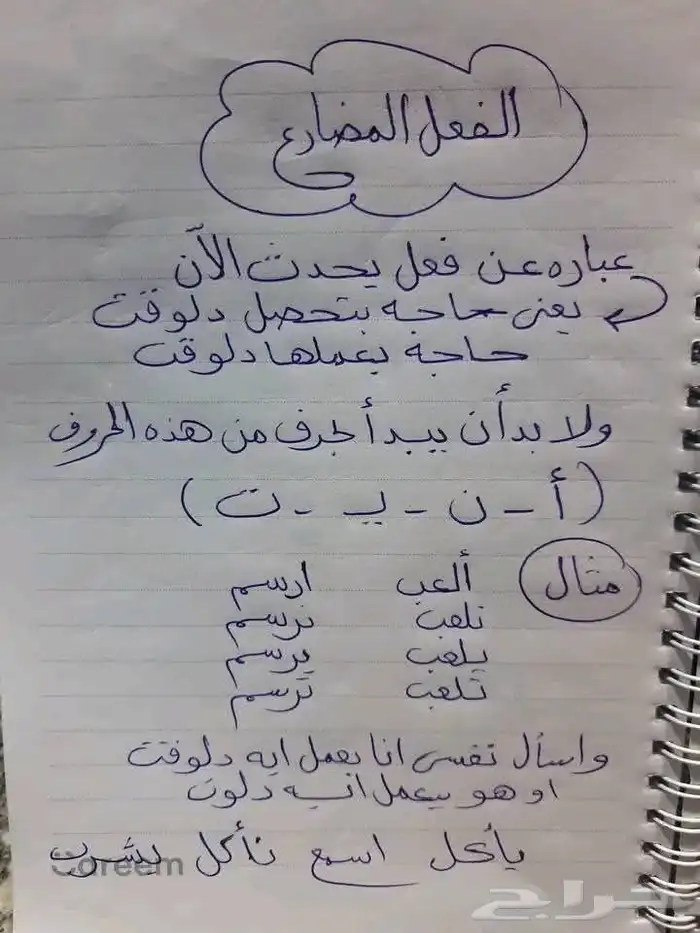 الفعل المضارع
عباره عن فعل يحدث الآن
يعنى حاجه بتحصل دلوقت
حاجة بعملها دلوقت
ولا بد أن يبدأ بحرف من هذه الحروف
(أ - ن - يـ - ت)
مثال
ألعب ارسم
نلعب نرسم
يلعب يرسم
تلعب ترسم
واسأل نفسى انا بعمل ايه دلوقت
او هو بيعمل ايه دلوت
يأكل اسمع نأكل يشرب
Coreem
حراج